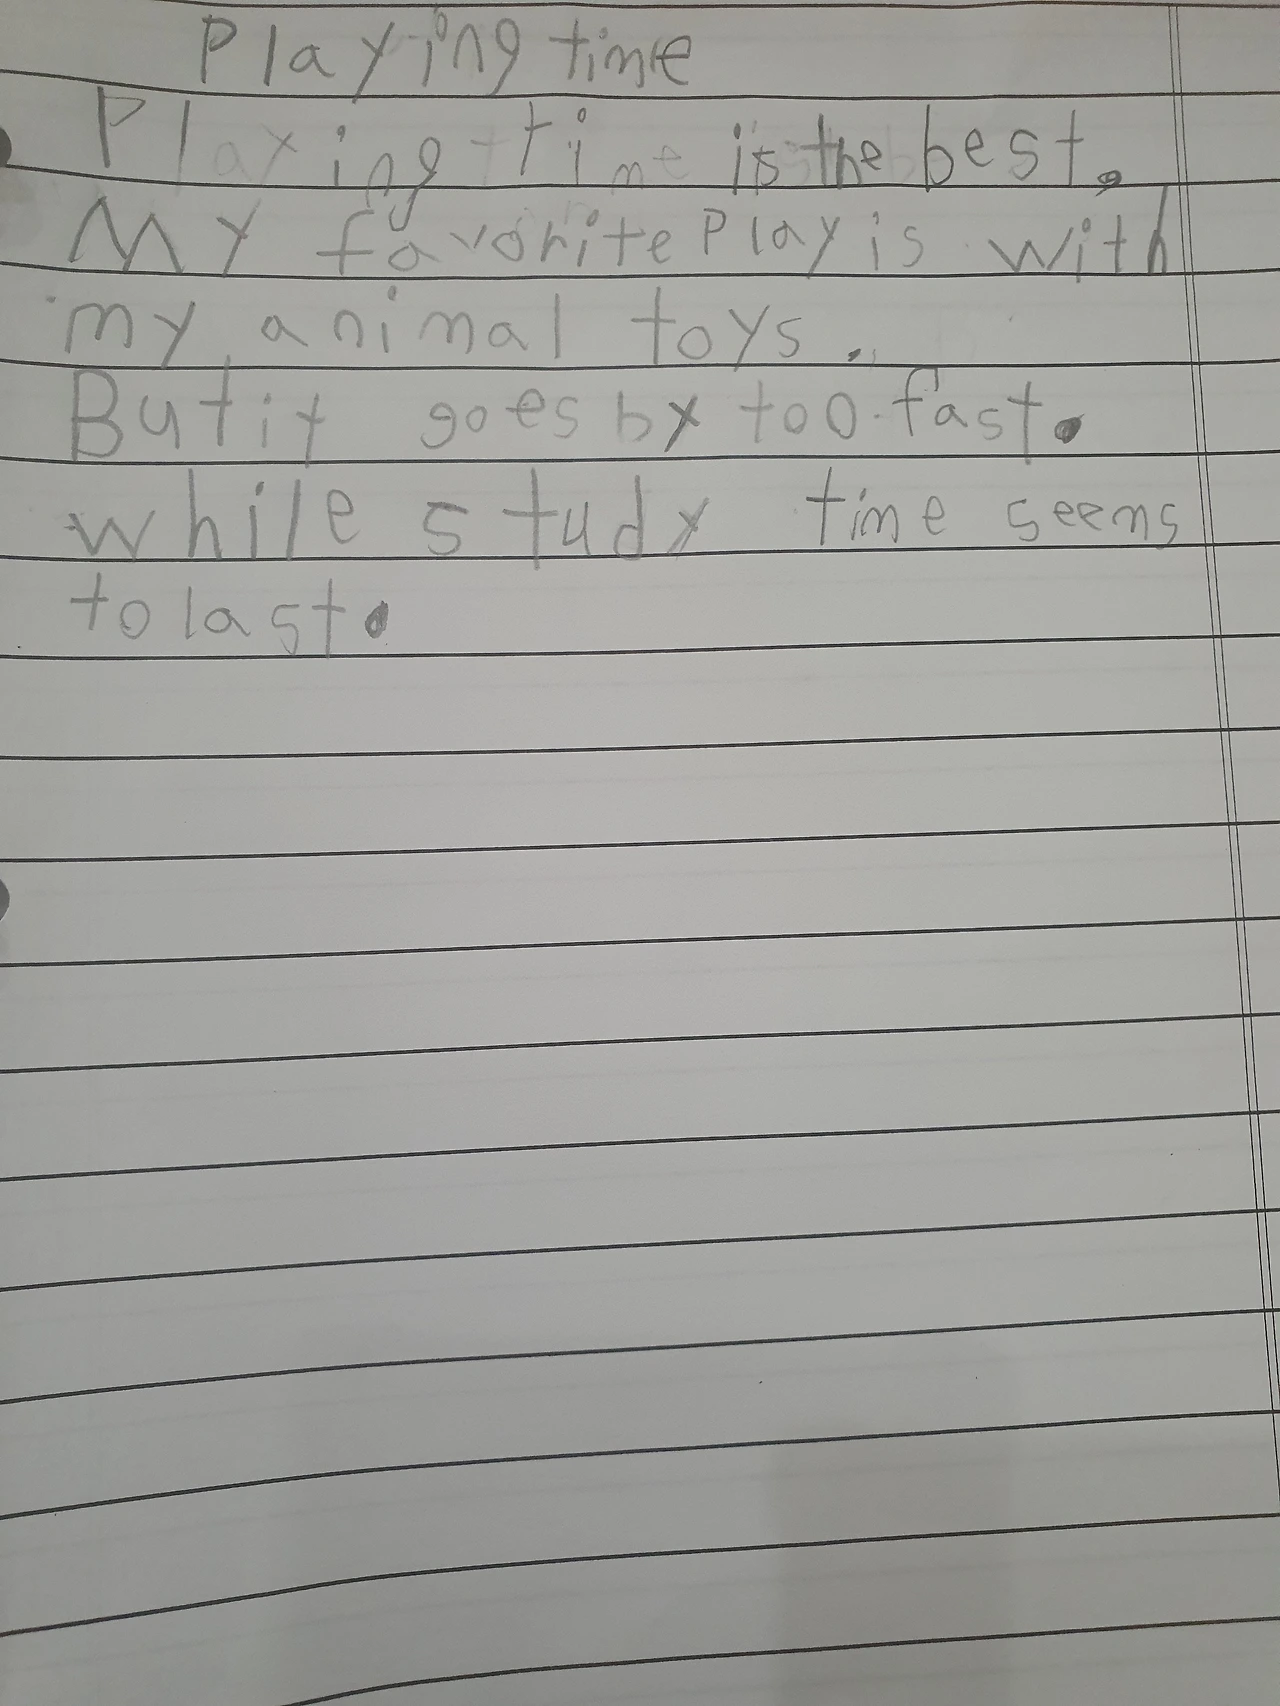 Playing time
Playing time is the best.
My favorite Play is with
my animal toys.
But it goes by too fast.
while study time seems
to last.